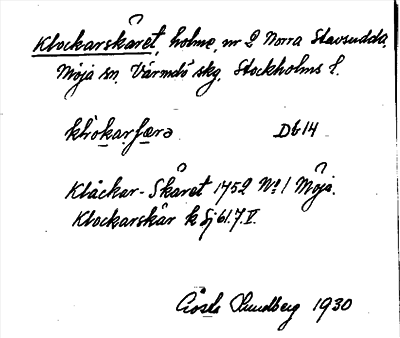 Klockarskäret, holme, nr 2 Norra Stavsudda,
Möja sn. Värmdö skg. Stockholms l.
Db 14
Klåckar-Skäret 1752 No 1 Möja.
Klockarskär k Sj 61.7.V.
Gösta Lundberg 1930